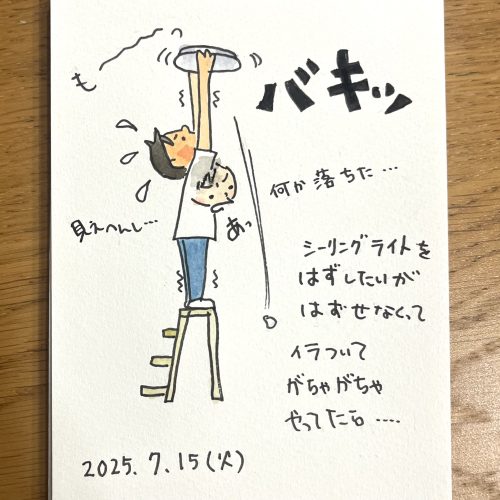 も〜
バキッ
何か落ちた…
見えへんし…
あっ
シーリングライトを
はずしたいが
はずせなくって
イラついて
がちゃがちゃ
やってたら....
2025.7.15(火)